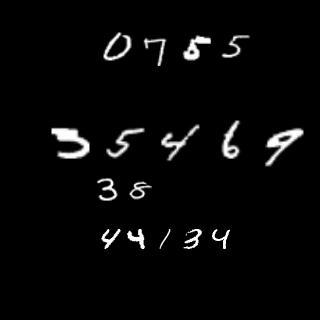 0755
35469
38
44134